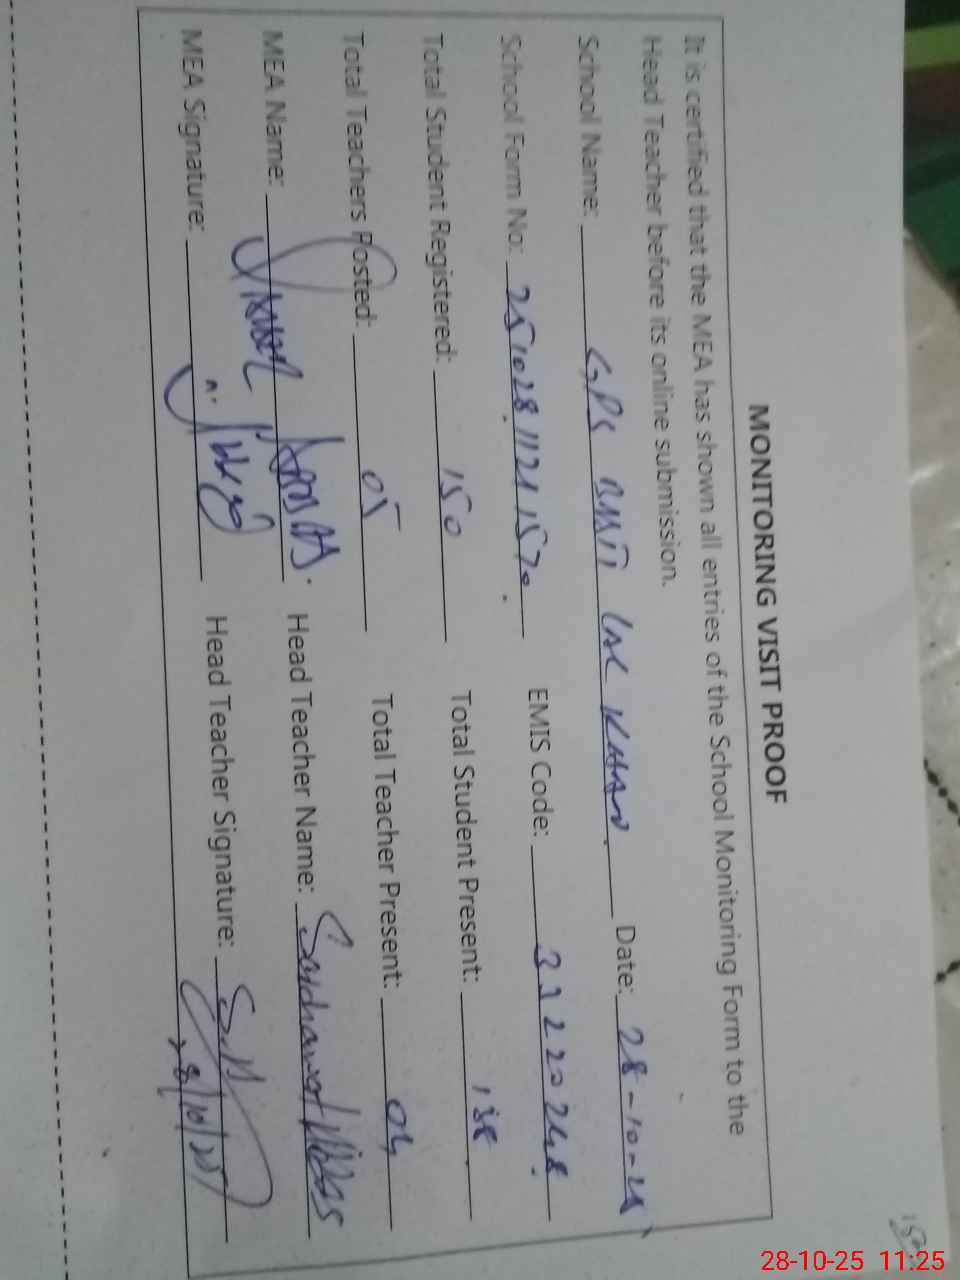 MONITORING VISIT PROOF
It is certified that the MEA has shown all entries of the School Monitoring Form to the
Head Teacher before its online submission.
School Name: GPS BASTI LAL KHAN Date: 28-10-25
School Form No: 25102811211570. EMIS Code: 33220248
Total Student Registered: 150 Total Student Present: 138
Total Teachers Posted: 05 Total Teacher Present: 04
MEA Name: Head Teacher Name: Abbas
MEA Signature: Head Teacher Signature:
28/10/25
28-10-25 11:25